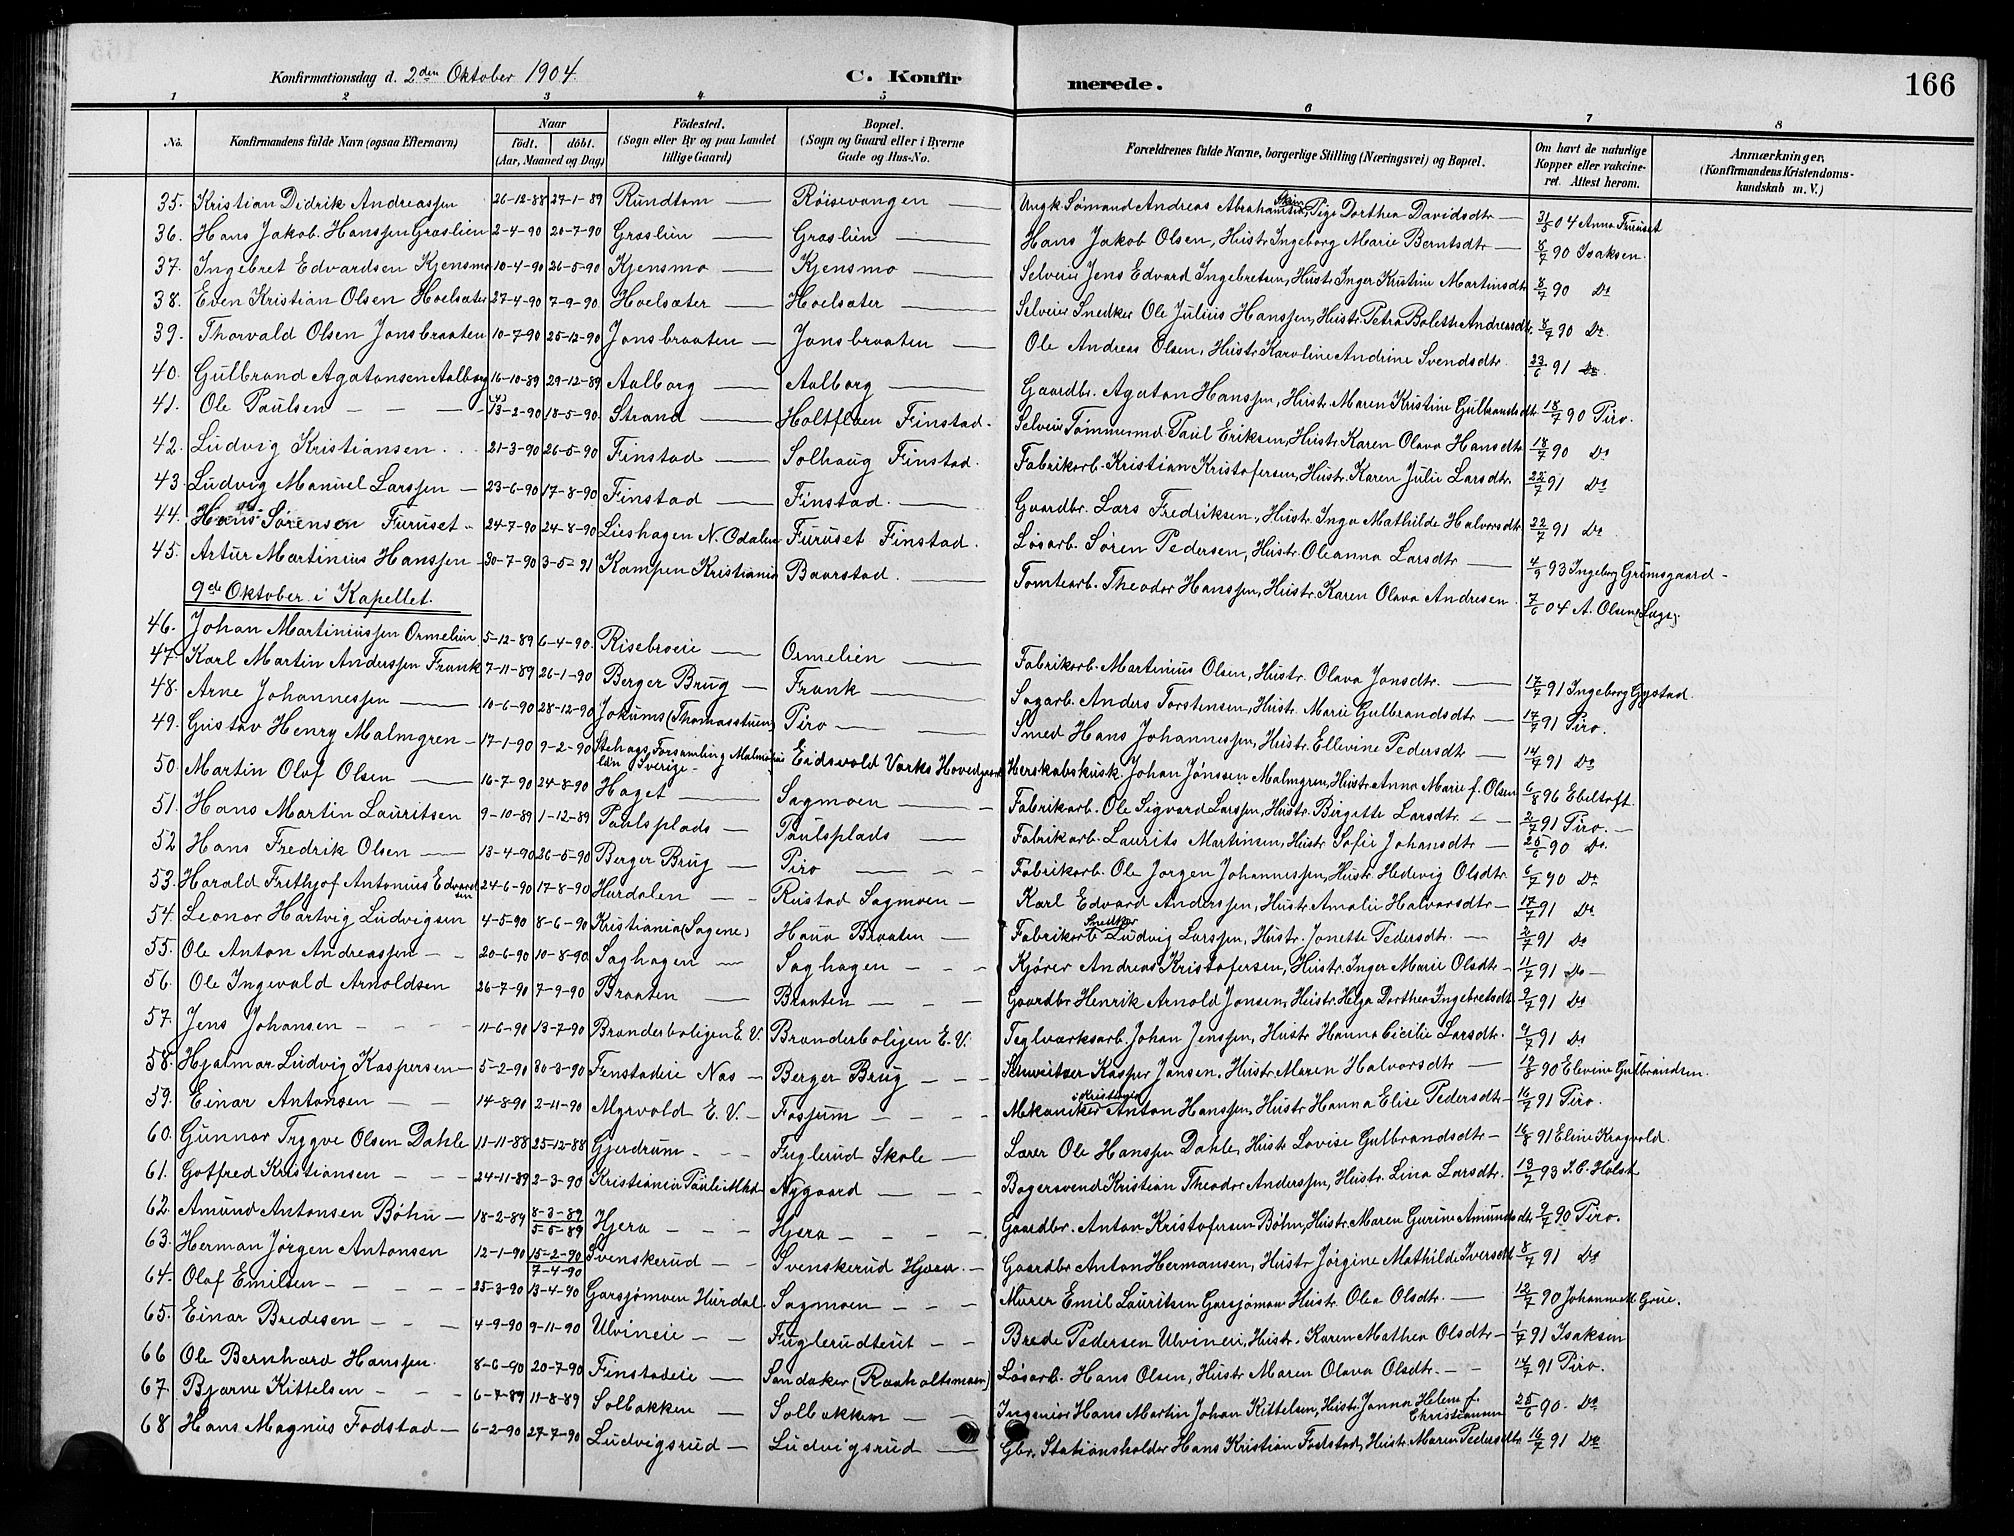 Konfirmationsdag d. 2den Oktober 1904. C. Konfirmerede. 166
1 2 3 4 5 6 7 8
No. Konfirmandens fulde Navn (ogsaa Efternavn) Naar født. døbt. (Aar, Maaned og Dag) Fødested. (Sogn eller By og paa Landet tillige Gaard) Bopæl. (Sogn og Gaard eller i Byerne Gade og Hus-No. Forældrenes fulde Navne, borgerlige Stilling (Næringsvei) og Bopæl. Om havt de naturlige Kopper eller vakcineret. Attest herom. Anmærkninger. (Konfirmandens Kristendomskundskab m. V.)
35. Kristian Didrik Andreassen 26-12-88 27-1-89 Rundtom Røisevangen Ungk. Sømand Andreas Abrahamsen, Pige Dorthea Davidsdtr 04 Anna Furuset
36. Hans Jakob Hanssen Graslien 2-4-90 20-7-90 Graslien Graslien Hans Jakob Olsen, Hustr. Ingeborg Marie Berntsdtr 8/7 90 Isaksen
37. Ingebret Edvardsen Kjensmo 10-4-90 26-5-90 Kjensmo Kjensmo Selveier Jens Edvard Ingebretsen, Hustr. Inger Kristine Martinsdtr 8/7 90 Do
38. Even Kristian Olsen Hoelsæter 27-4-90 7-9-90 Hoelsæter Hoelsæter Selveier Snedker Ole Julius Hanssen, Hustr. Petra Bolette Andreasdtr. 8/7 90 Do
39. Thorvald Olsen Jonsbraaten 10-7-90 25-12-90 Jonsbraaten Jonsbraaten Ole Andreas Olsen, Hustr. Karoline Andrine Svendsdtr. 23/6 91 Do
40. Gulbrand Agatonsen Aalborg 16-10-89 29-12-89 Aalborg Aalborg Gaardbr. Agaton Hanssen, Hustr. Maren Kristine Gulbrandsdtr. 18/7 90 Piro.
41. Ole Paulsen 13-2-90 18-5-90 Strand Holtfloen Finstad. Selveier Tømmermd. Paul Eriksen, Hustr. Karen Olava Hansdtr 18/7 90 Do
42. Ludvig Kristiansen 21-3-90 26-5-90 Finstad Solhaug Finstad. Fabrikarb. Kristian Kristofersen, Hustr. Karen Julie Larsdtr. 91 Do
43. Ludvig Manuel Larssen 23-6-90 17-8-90 Finstad Finstad. Gaardbr. Lars Fredriksen, Hustr. Inga Mathilde Halvorsdtr 22/7 91 Do
44. Sørensen Furuset 24-7-90 24-8-90 Lieshagen N. Odalen Furuset Finstad. Løsarb. Søren Pedersen, Hustr. Oleanna Larsdtr 4/9 93 Ingeborg Grimsgaard
45. Artur Martinius Hanssen 30-7-90 3-5-91 Kampen Kristiania Baarstad. Tomtearb. Theodor Hanssen, Hustr. Karen Olava Andresen 7/6 04 A. Olsen (Læge).
9de Oktober i Kapellet.
46. Johan Martiniussen Ormelien 5-12-89 6-4-90 Risebroeie Ormelien Fabrikarb. Martinius Olsen, Hustr. Olava Jonsdtr. 17/7 91 Ingeborg Gystad.
47. Karl Martin Anderssen Frank 7-11-89 26-1-90 Berger Brug Frank Sagarb. Anders Torstensen, Hustr. Marie Gulbrandsdtr 17/7 91 Piro.
48. Arne Johannessen 10-6-90 28-12-90 Jokums (Thomasstuen) Piro Smed Hans Johannessen, Hustr. Ellevine Pedersdtr 14/7 91 Do
49. Gustav Henry Malmgren 17-1-90 9-2-90 Stehags Forsamling Malmøhus län Sverige Eidsvold Værks Hovedgaard Herskabskusk. Johan Jönssen Malmgren, Hustr. Anna Marie f. Olsen 6/8 96 Ebeltoft.
50. Martin Olaf Olsen 16-7-90 24-8-90 Haget Sagmoen Fabrikarb. Ole Sigvard Larssen, Hustr. Birgitte Larsdtr. 2/7 91 Piro.
51. Hans Martin Lauritsen 9-10-89 1-12-89 Paulsplads Paulsplads Fabrikarb. Laurits Martinsen, Hustr. Sofie Johansdtr 25/6 90 Do
52 Hans Fredrik Olsen 13-4-90 26-5-90 Berger Brug Piro Fabrikarb. Ole Jørgen Johannessen, Hustr. Hedevig Olsdtr. 6/7 90 Do
53. Harald Frithjof Antonius Edvardsen 24-6-90 17-8-90 Hurdalen Rustad Sagmoen Karl Edvard Anderssen, Hustr. Amalie Halvorsdtr 17/7 91 Do
54. Leonor Hartvig Ludvigsen 4-5-90 8-6-90 Kristiania (Sagene) Haua Braaten Fabrikarb Snedker Ludvig Larssen, Hustr. Jonette Pedersdtr. 2/7 91 Do
55. Ole Anton Andreassen 20-6-90 10-8-90 Saghagen Saghagen Kjører Andreas Kristofersen, Hustr. Inger Marie Olsdtr 11/7 91 Do
56. Ole Ingevald Arnoldsen 26-7-90 7-9-90 Braaten Braaten Gaardbr Henrik Arnold Jonsen, Hustr. Helga Dorthea Ingebretsdtr 2/7 91 Do
57. Jens Johansen 11-6-90 13-7-90 Brænderboligen E. V. Brænderboligen E. V. Teglværksarb. Johan Jenssen, Hustr. Hanna Cicilie Larsdtr. 91 Do
58. Hjalmar Ludvig Kaspersen 5-2-90 30-3-90 Fenstadeie Næs Berger Brug Schweitser Kasper Jansen. Hustr. Maren Halvorsdtr 90 Elevine Gulbrandsen.
59. Einar Antonsen 14-8-90 2-11-90 Myrvold E. V. Fossum Mekaniker i Kristiania Anton Hanssen, Hustr Hanna Elise Pedersdtr 16/7 91 Piro.
60. Gunnar Trygve Olsen Dahle 11-11-88 25-12-88 Gjerdrum Fuglerud Skole Lærer Ole Hanssen Dahle, Hustr Lovise Gulbrandsdtr 16/8 91 Eline Kragvold.
61. Gotfred Kristiansen 24-11-89 2-3-90 Kristiania Pauli Mhd. Nygaard Bagersvend Kristian Theodor Anderssen, Hustr. Lina Larsdtr. 93 J. C. Holst
62. Amund Antonsen Bøhn 18-2-89 8-3-89 5-5-89 Hjera Hjera Gaardbr. Anton Kristofersen Bøhn, Hustr. Maren Gurine Amundsdtr 2/7 90 Piro.
63. Herman Jørgen Antonsen 12-1-90 15-2-90 7-4-90 Svenskerud Svenskerud Hjera Gaardbr Anton Hermansen, Hustr Jørgine Mathilde Iversdtr 8/7 91 Do
64. Olaf Emilsen 25-3-90 13-4-90 Garsjømoen Hurdal. Sagmoen Murer Emil Lauritsen Garsjømoen Hustr. Olea Olsdtr. 12/7 90 Johanne M. Grue.
65. Einar Bredesen 4-9-90 9-11-90 Ulvineie Fuglerudteiet Brede Pedersen Ulvineie, Hustr. Karen Mathea Olsdtr 1/7 91 Isaksen
66 Ole Bernhard Hanssen. 8-6-90 20-7-90 Finstadeie Sandaker (Raaholtsmoen) Løsarb. Hans Olsen, Hustr Maren Olava Olsdtr. 91 Piro.
67. Bjarne Kittelsen 6-7-89 11-8-89 Solbakken Solbakken Ingeniør Hans Martin Johan Kittelsen, Hustr. Janna Helene f. Christiansen 25/6 90. Do
68 Hans Magnus Fodstad 6-2-90 27-7-90 Ludvigsrud Ludvigsrud Gbr. Stationsholder Hans Kristian Fodstad, Hustr. Maren Pedersdtr 16/7 91 Do